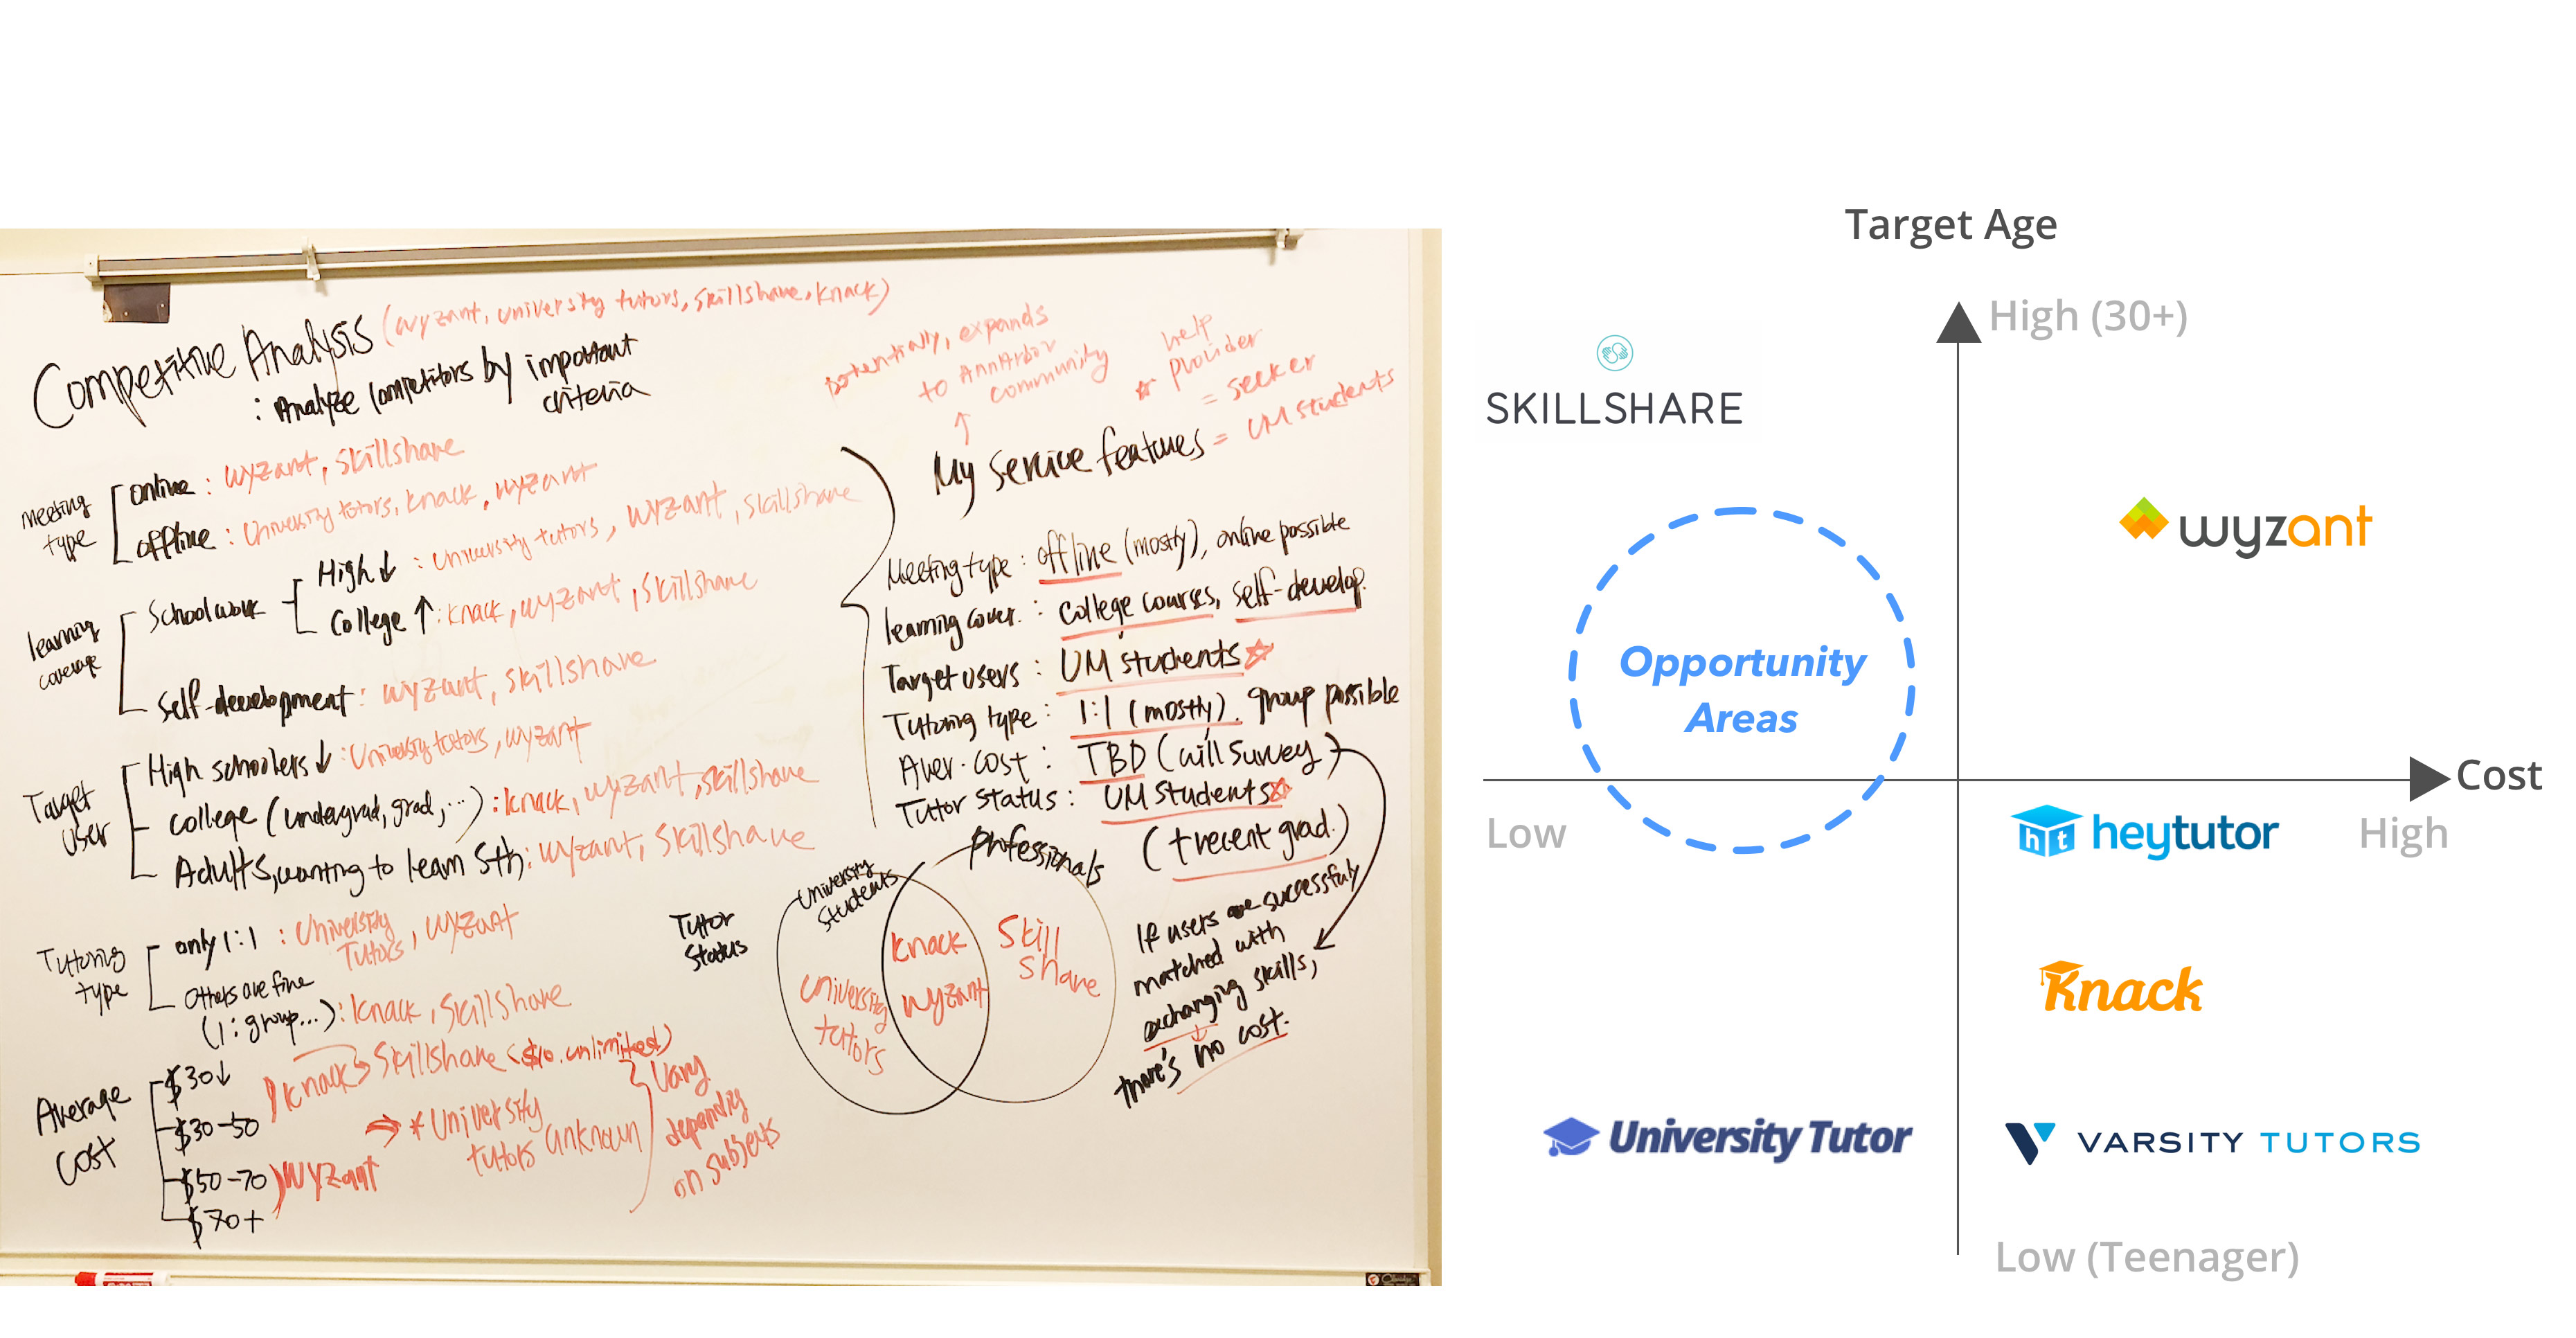 Competitive Analysis (wyzant, university tutors, skillshare, knack)
: Analyze competitors by important
criteria
Meeting
type
online : wyzant, skillshare
offline : University tutors, knack, wyzant
learning
coverage
School work
High ↓ : University tutors, wyzant, skillshare
College ↑ : knack, wyzant, skillshare
Self-development : wyzant, skillshare
Target
user
High schoolers ↓ : University tutors, wyzant
college (undergrad, grad, ...) : knack, wyzant, skillshare
Adults, wanting to learn sth : wyzant, skillshare
Tutoring
type
only 1:1 : University
Tutors, wyzant
Others are fine
(1:group...) : knack, skillshare
Average
cost
$30↓
$30-50
$50-70
$70+
knack → Skillshare ($10. unlimited)
⇒ * University
tutors unknown
wyzant
Vary
depending
on subjects
potentially, expands
to AnnArbor
community
help
provider
= seeker
= UM students
My Service features
Meeting type : offline (mostly), online possible
learning cover. : college courses, self-develop.
Target users : UM students
Tutoring type : 1:1 (mostly), group possible
Aver. cost : TBD (will survey)
Tutor status : UM students
(+ recent grad.)
Tutor
Status
University
students
Professionals
University
tutors
knack
wyzant
Skill
Share
If users are successfuly
matched with
exchanging skills,
there's no cost.
Target Age
High (30+)
SKILLSHARE
wyzant
Opportunity
Areas
Cost
Low
High
ht heytutor
Knack
University Tutor
VARSITY TUTORS
Low (Teenager)